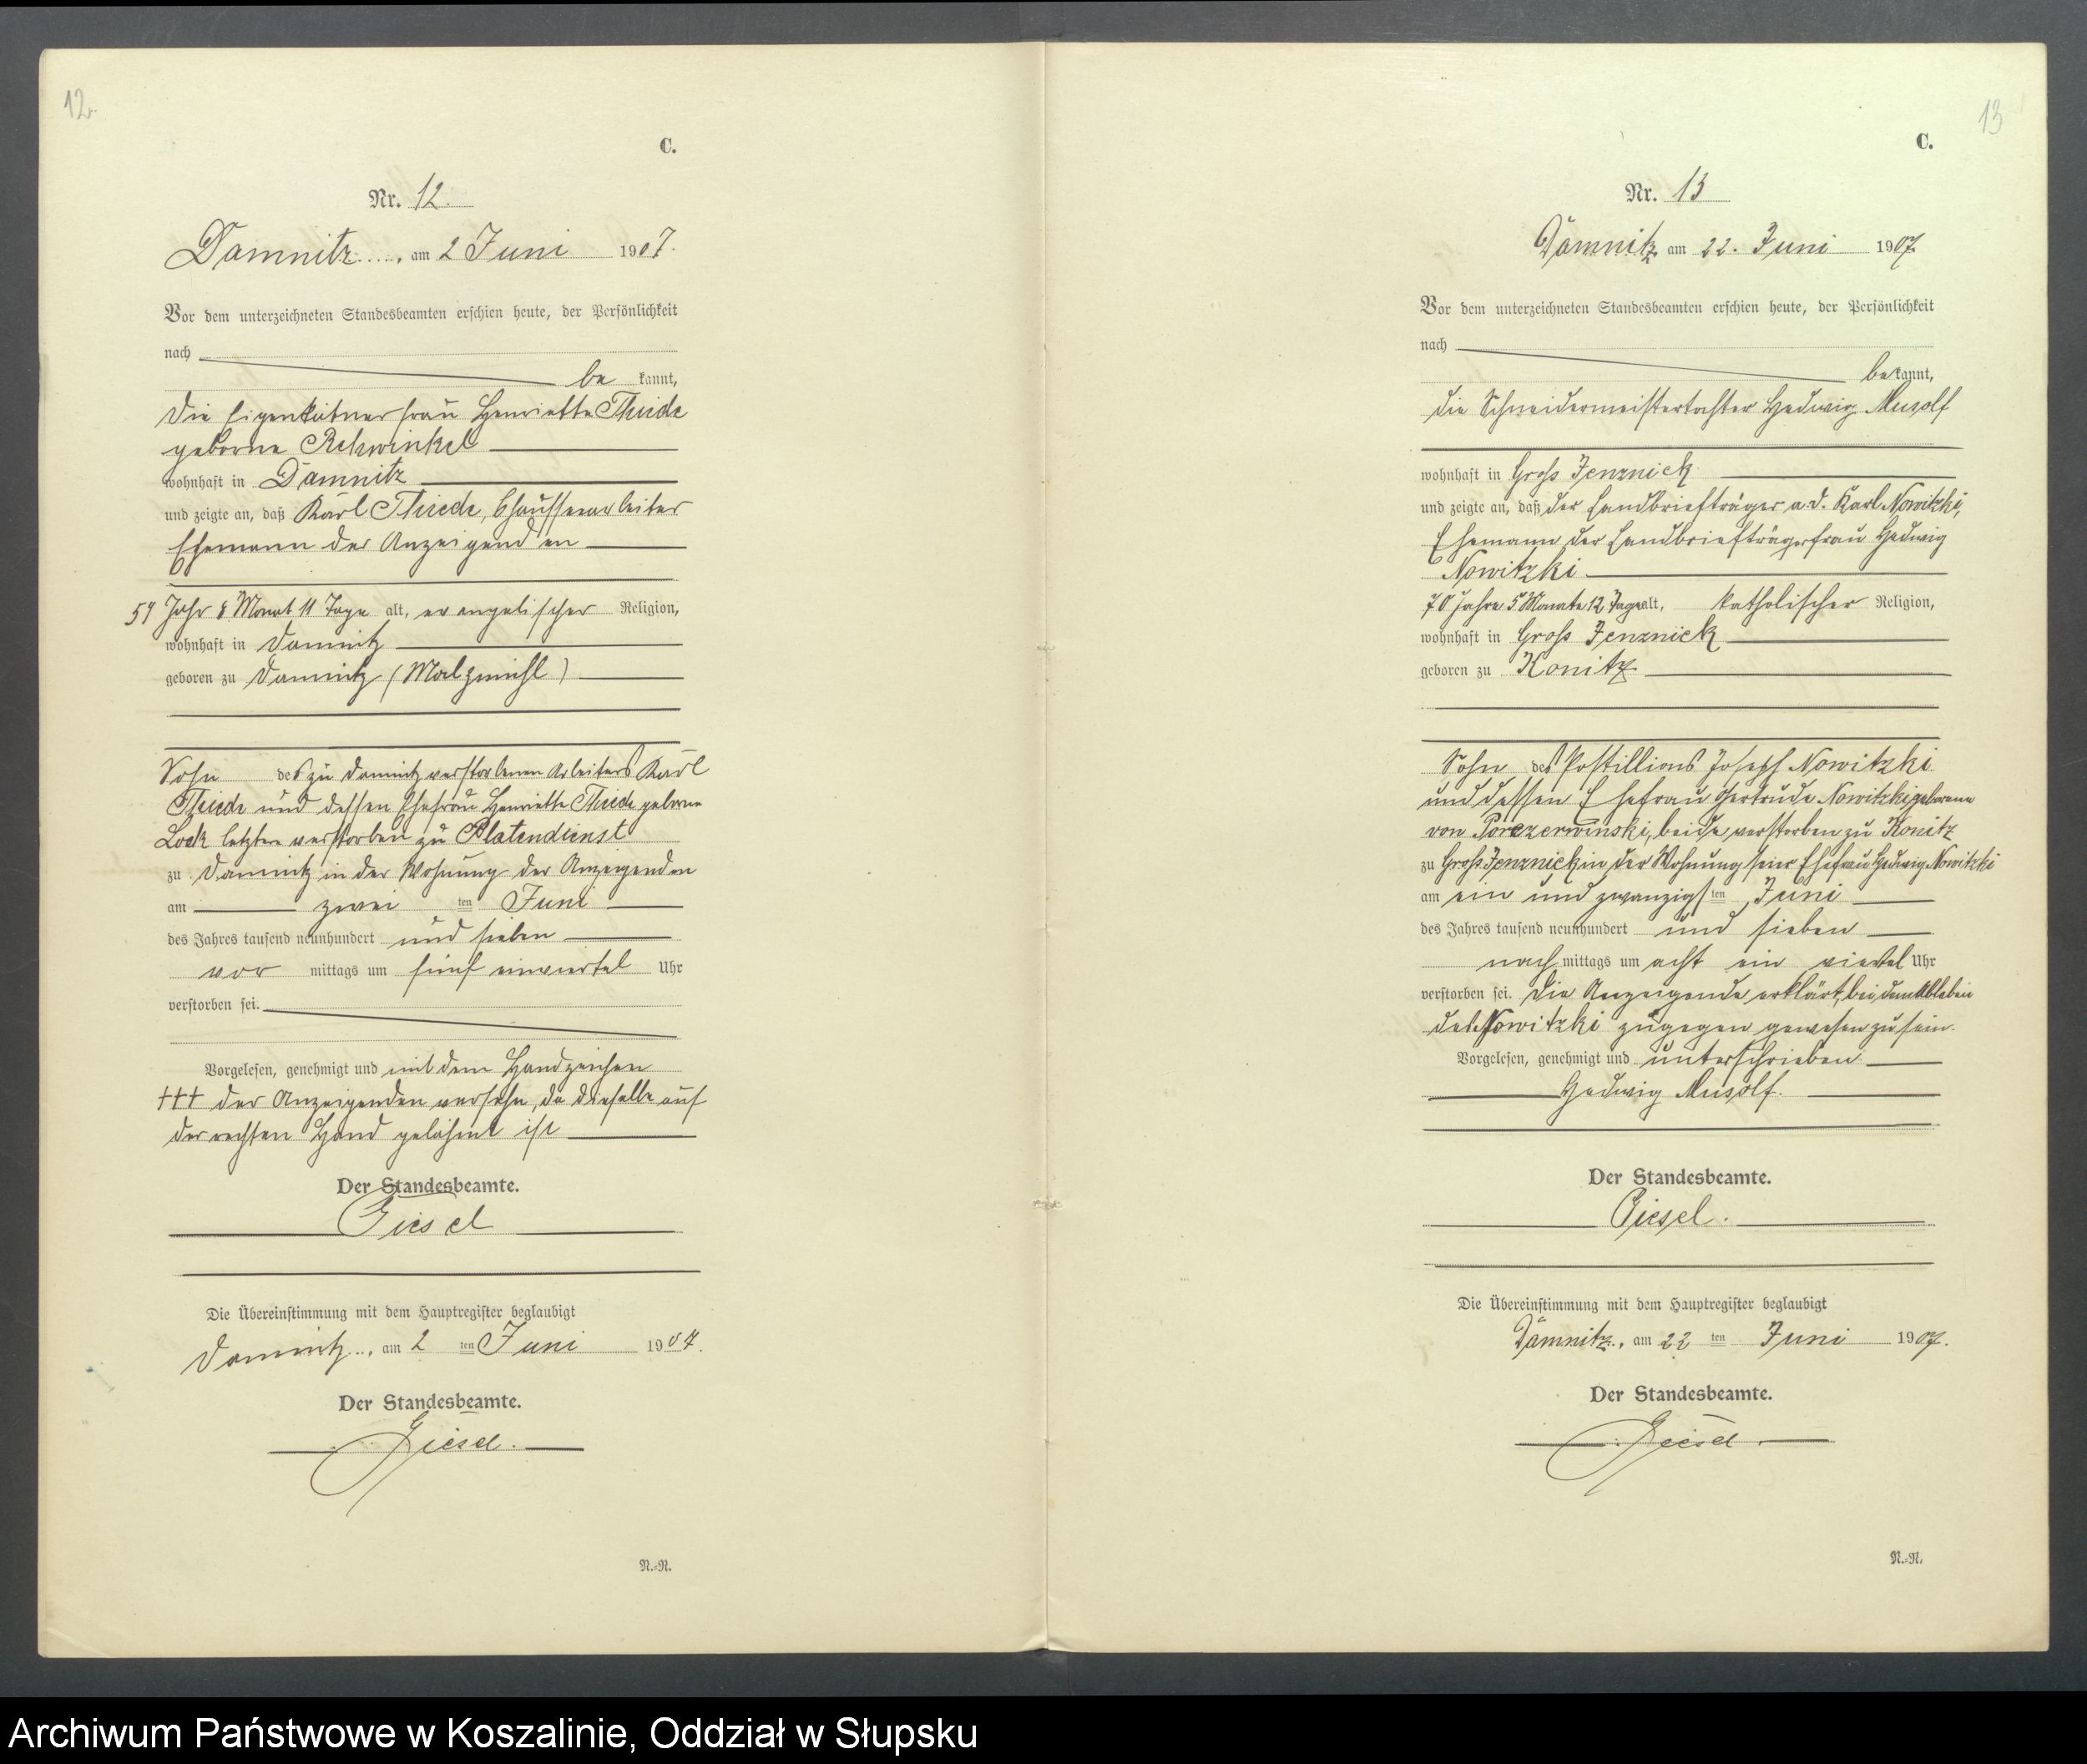 12.
C.
Nr. 12.
Damnitz, am 2 Juni 1907.
Vor dem unterzeichneten Standesbeamten erschien heute, der Persönlichkeit
nach
be kannt,
die Eigenkätnerfrau Henriette Thiede
geborne Rehwinkel
wohnhaft in Damnitz
und zeigte an, daß Karl Thiede, Chausseearbeiter
Ehemann der Anzeigenden
Jahr 8 Monat 11 Tage alt, evangelischer Religion,
wohnhaft in Damnitz
geboren zu Damnitz (Malzmühl)
Sohn des zu Damnitz verstorbenen Arbeiters Karl
Thiede und dessen Ehefrau Henriette Thiede geborne
Lock letztere verstorben zu Platendienst
zu Damnitz in der Wohnung der Anzeigenden
am zwei ten Juni
des Jahres tausend neunhundert und sieben
vor mittags um fünf einviertel Uhr
verstorben sei.
Vorgelesen, genehmigt und mit dem Handzeichen
+++ der Anzeigenden versehn, da dieselbe auf
der rechten Hand gelähmt ist
Der Standesbeamte.
Giesel
Die Übereinstimmung mit dem Hauptregister beglaubigt
Damnitz, am 2 ten Juni 1907.
Der Standesbeamte.
Giesel.
N.=N.
13
C.
Nr. 13
Damnitz am 22. Juni 1907
Vor dem unterzeichneten Standesbeamten erschien heute, der Persönlichkeit
nach
bekannt,
die Schneidermeistertochter Hedwig Musolf
wohnhaft in Gross Jenznick
und zeigte an, daß der Landbriefträger a.d. Karl Nowitzki,
Ehemann der Landbriefträgerfrau Hedwig
Nowitzki
70 Jahre 5 Monate 12 Tage alt, katholischer Religion,
wohnhaft in Gross Jenznick
geboren zu Konitz
Sohn des Postillions Joseph Nowitzki
und dessen Ehefrau Gertrude Nowitzki geborene
von, beide verstorben zu Konitz
zu Gross Jenznick in der Wohnung seier Ehefrau Hedwig Nowitzki
am ein und zwanzigsten Juni
des Jahres tausend neunhundert und sieben
nach mittags um acht ein viertel Uhr
verstorben sei. Die Anzeigende erklärt, bei dem Ableben
des Nowitzki zugegen gewesen zu sein.
Vorgelesen, genehmigt und unterschrieben
Hedwig Musolf.
Der Standesbeamte.
Giesel.
Die Übereinstimmung mit dem Hauptregister beglaubigt
Damnitz, am 22 ten Juni 1907.
Der Standesbeamte.
Giesel.
N.=N.
Archiwum Państwowe w Koszalinie, Oddział w Słupsku